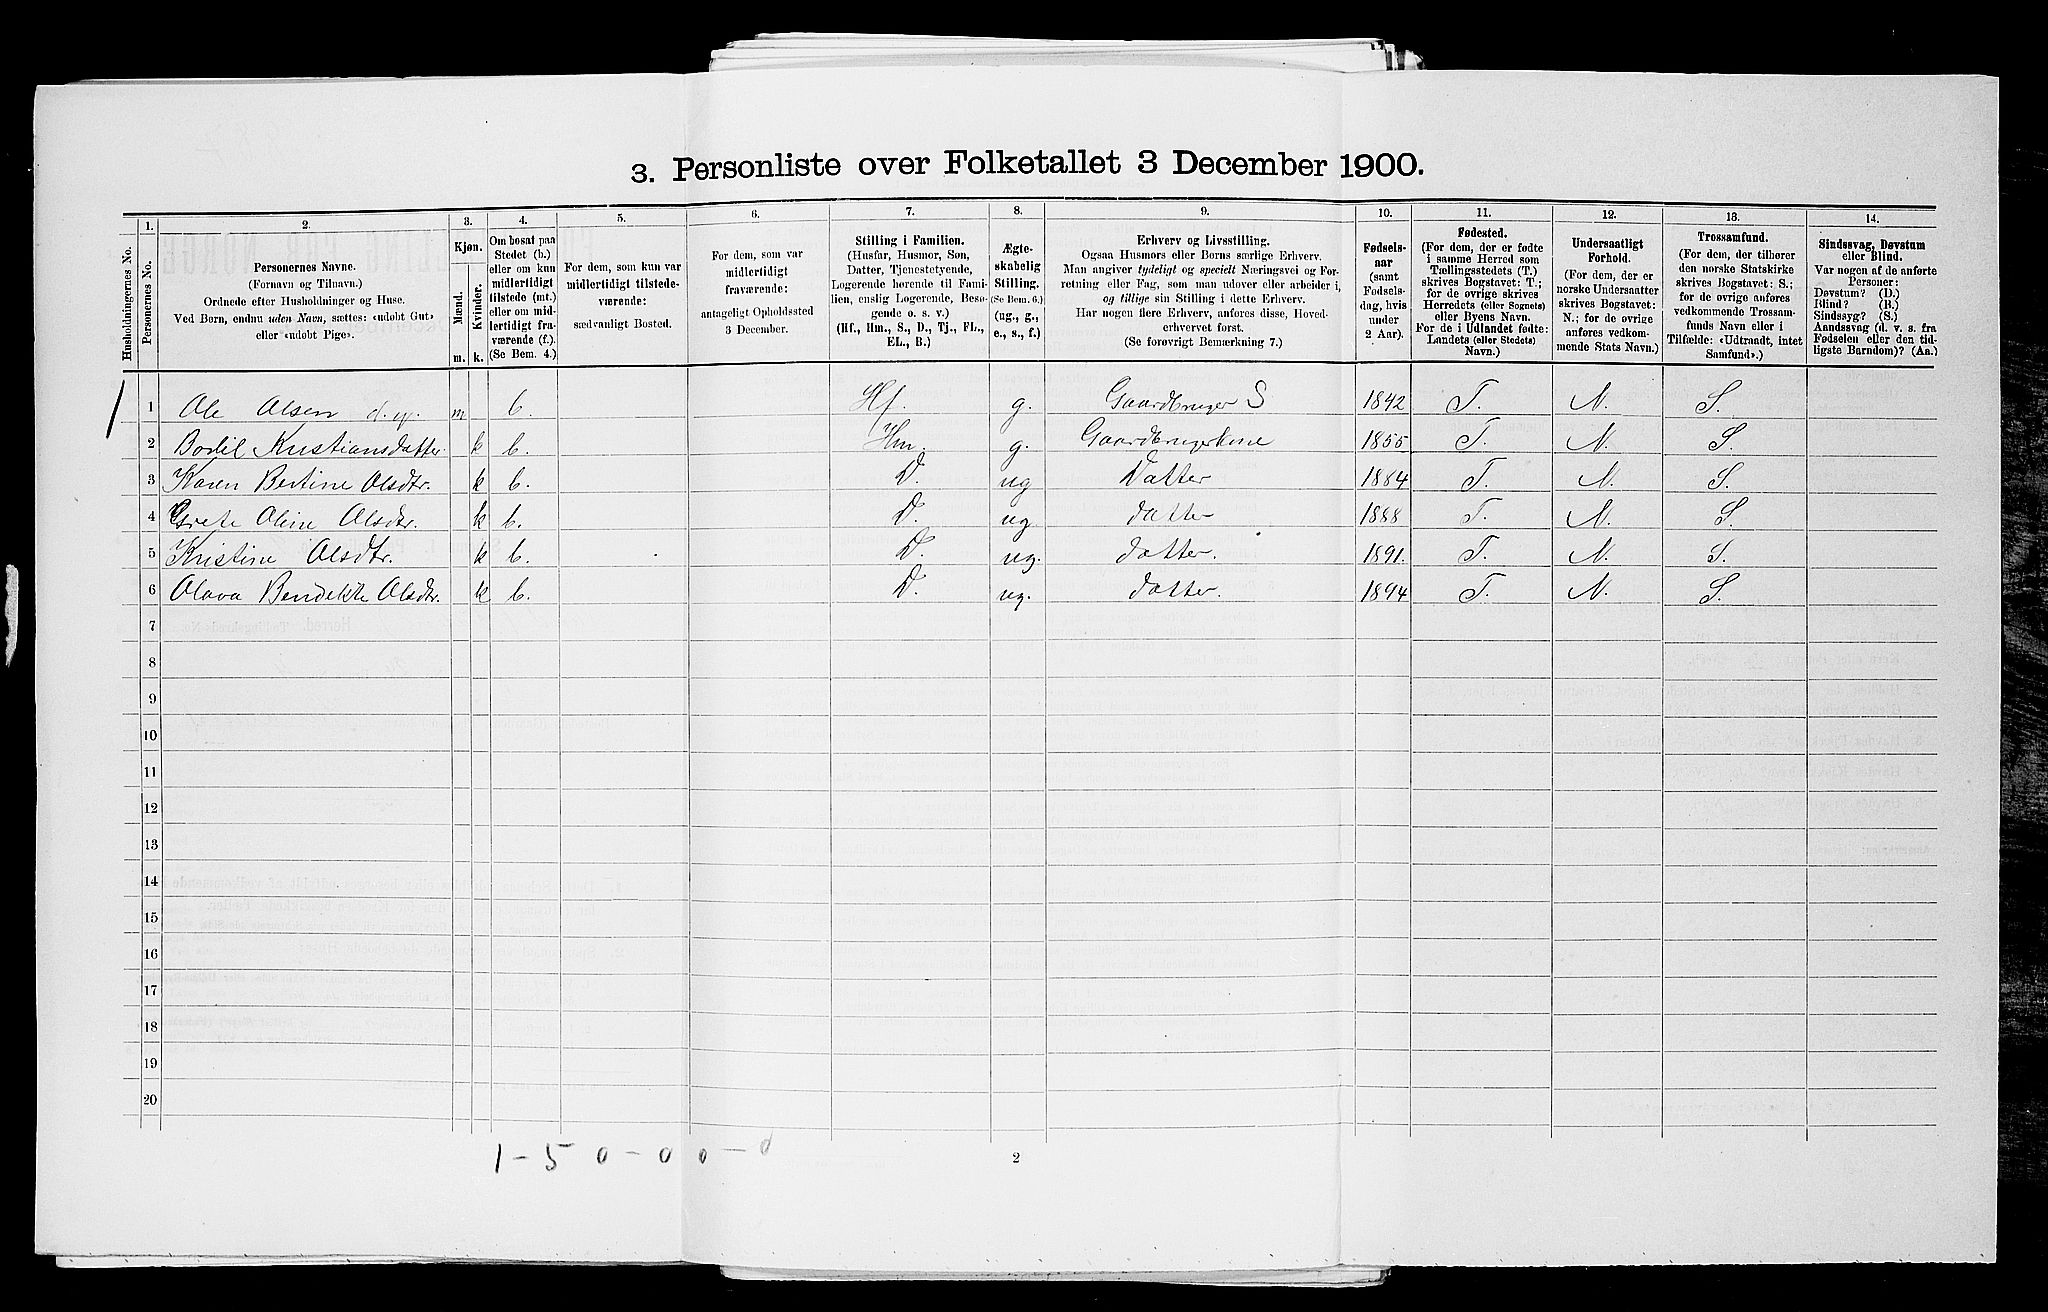 3. Personliste over Folketallet 3 December 1900.
1. 2. 3. 4. 5. 6. 7. 8. 9. 10. 11. 12. 13. 14.
Husholdningernes No.
Personernes No.
Personernes Navne.
(Fornavn og Tilnavn.)
Ordnede efter Husholdninger og Huse.
Ved Børn, endnu uden Navn, sættes: «udøbt Gut»
eller «udøbt Pige».
Kjøn.
Mænd.
Kvinder.
m. k.
Om bosat paa
Stedet (b.)
eller om kun
midlertidigt
tilstede (mt.)
eller om mid-
lertidigt fra-
værende (f.).
(Se Bem. 4.)
For dem, som kun var
midlertidigt tilstede-
værende:
sædvanligt Bosted.
For dem, som var
midlertidigt
fraværende:
antageligt Opholdssted
3 December.
Stilling i Familien.
(Husfar, Husmor, Søn,
Datter, Tjenestetyende,
Logerende hørende til Fami-
lien, enslig Logerende, Besø-
gende o. s. v.)
(Hf., Hm., S., D., Tj., FL.,
EL., B.)
Ægte-
skabelig
Stilling.
(Se Bem. 6.)
(ug., g.,
e., s., f.)
Erhverv og Livsstilling.
Ogsaa Husmors eller Børns særlige Erhverv.
Man angiver tydeligt og specielt Næringsvei og For-
retning eller Fag, som man udover eller arbeider i,
og tillige sin Stilling i dette Erhverv.
Har nogen flere Erhverv, anføres disse, Hoved-
erhvervet først.
(Se forøvrigt Bemærkning 7.)
Fødsels-
aar
(samt
Fødsels-
dag, hvis
under
2 Aar).
Fødested.
(For dem, der er fødte
i samme Herred som
Tællingsstedets (T.)
skrives Bogstavet: T.;
for de øvrige skrives
Herredets (eller Sognets)
eller Byens Navn.
For de i Udlandet fødte:
Landets (eller Stedets)
Navn.)
Undersaatligt
Forhold.
(For dem, der er
norske Undersaatter
skrives Bogstavet:
N.; for de øvrige
anføres vedkom-
mende Stats Navn.)
Trossamfund.
(For dem, der tilhører
den norske Statskirke
skrives Bogstavet: S.;
for de øvrige anføres
vedkommende Trossam-
funds Navn eller i
Tilfælde: «Udtraadt, intet
Samfund».)
Sindssvag, Døvstum
eller Blind.
Var nogen af de anførte
Personer:
Døvstum? (D.)
Blind? (B.)
Sindssyg? (S.)
Aandssvag (d. v. s. fra
Fødselen eller den tid-
ligste Barndom)? (Aa.)
1 1 Ole Olsen m b. Hf. g. Gaardbruger S 1842 T. N. S.
2 Bodil Kristiansdatter. k b. Hm g. Gaardbrugerkone 1855 T. N. S.
3 Karen Bertine Olsdtr. k b. D. ug Datter 1884 T. N. S.
4 Grete Oline Olsdtr. k b. D. ug. datter 1888 T. N. S.
5 Kristine Olsdtr. k b. D. ug. datter. 1891. T. N. S.
6 Olava Bendikte Olsdtr. k b. D. ug. datter. 1894 T. N. S.
7
8
9
10
11
12
13
14
15
16
17
18
19
20
1 - 5 0 - 0 0 - 0
2